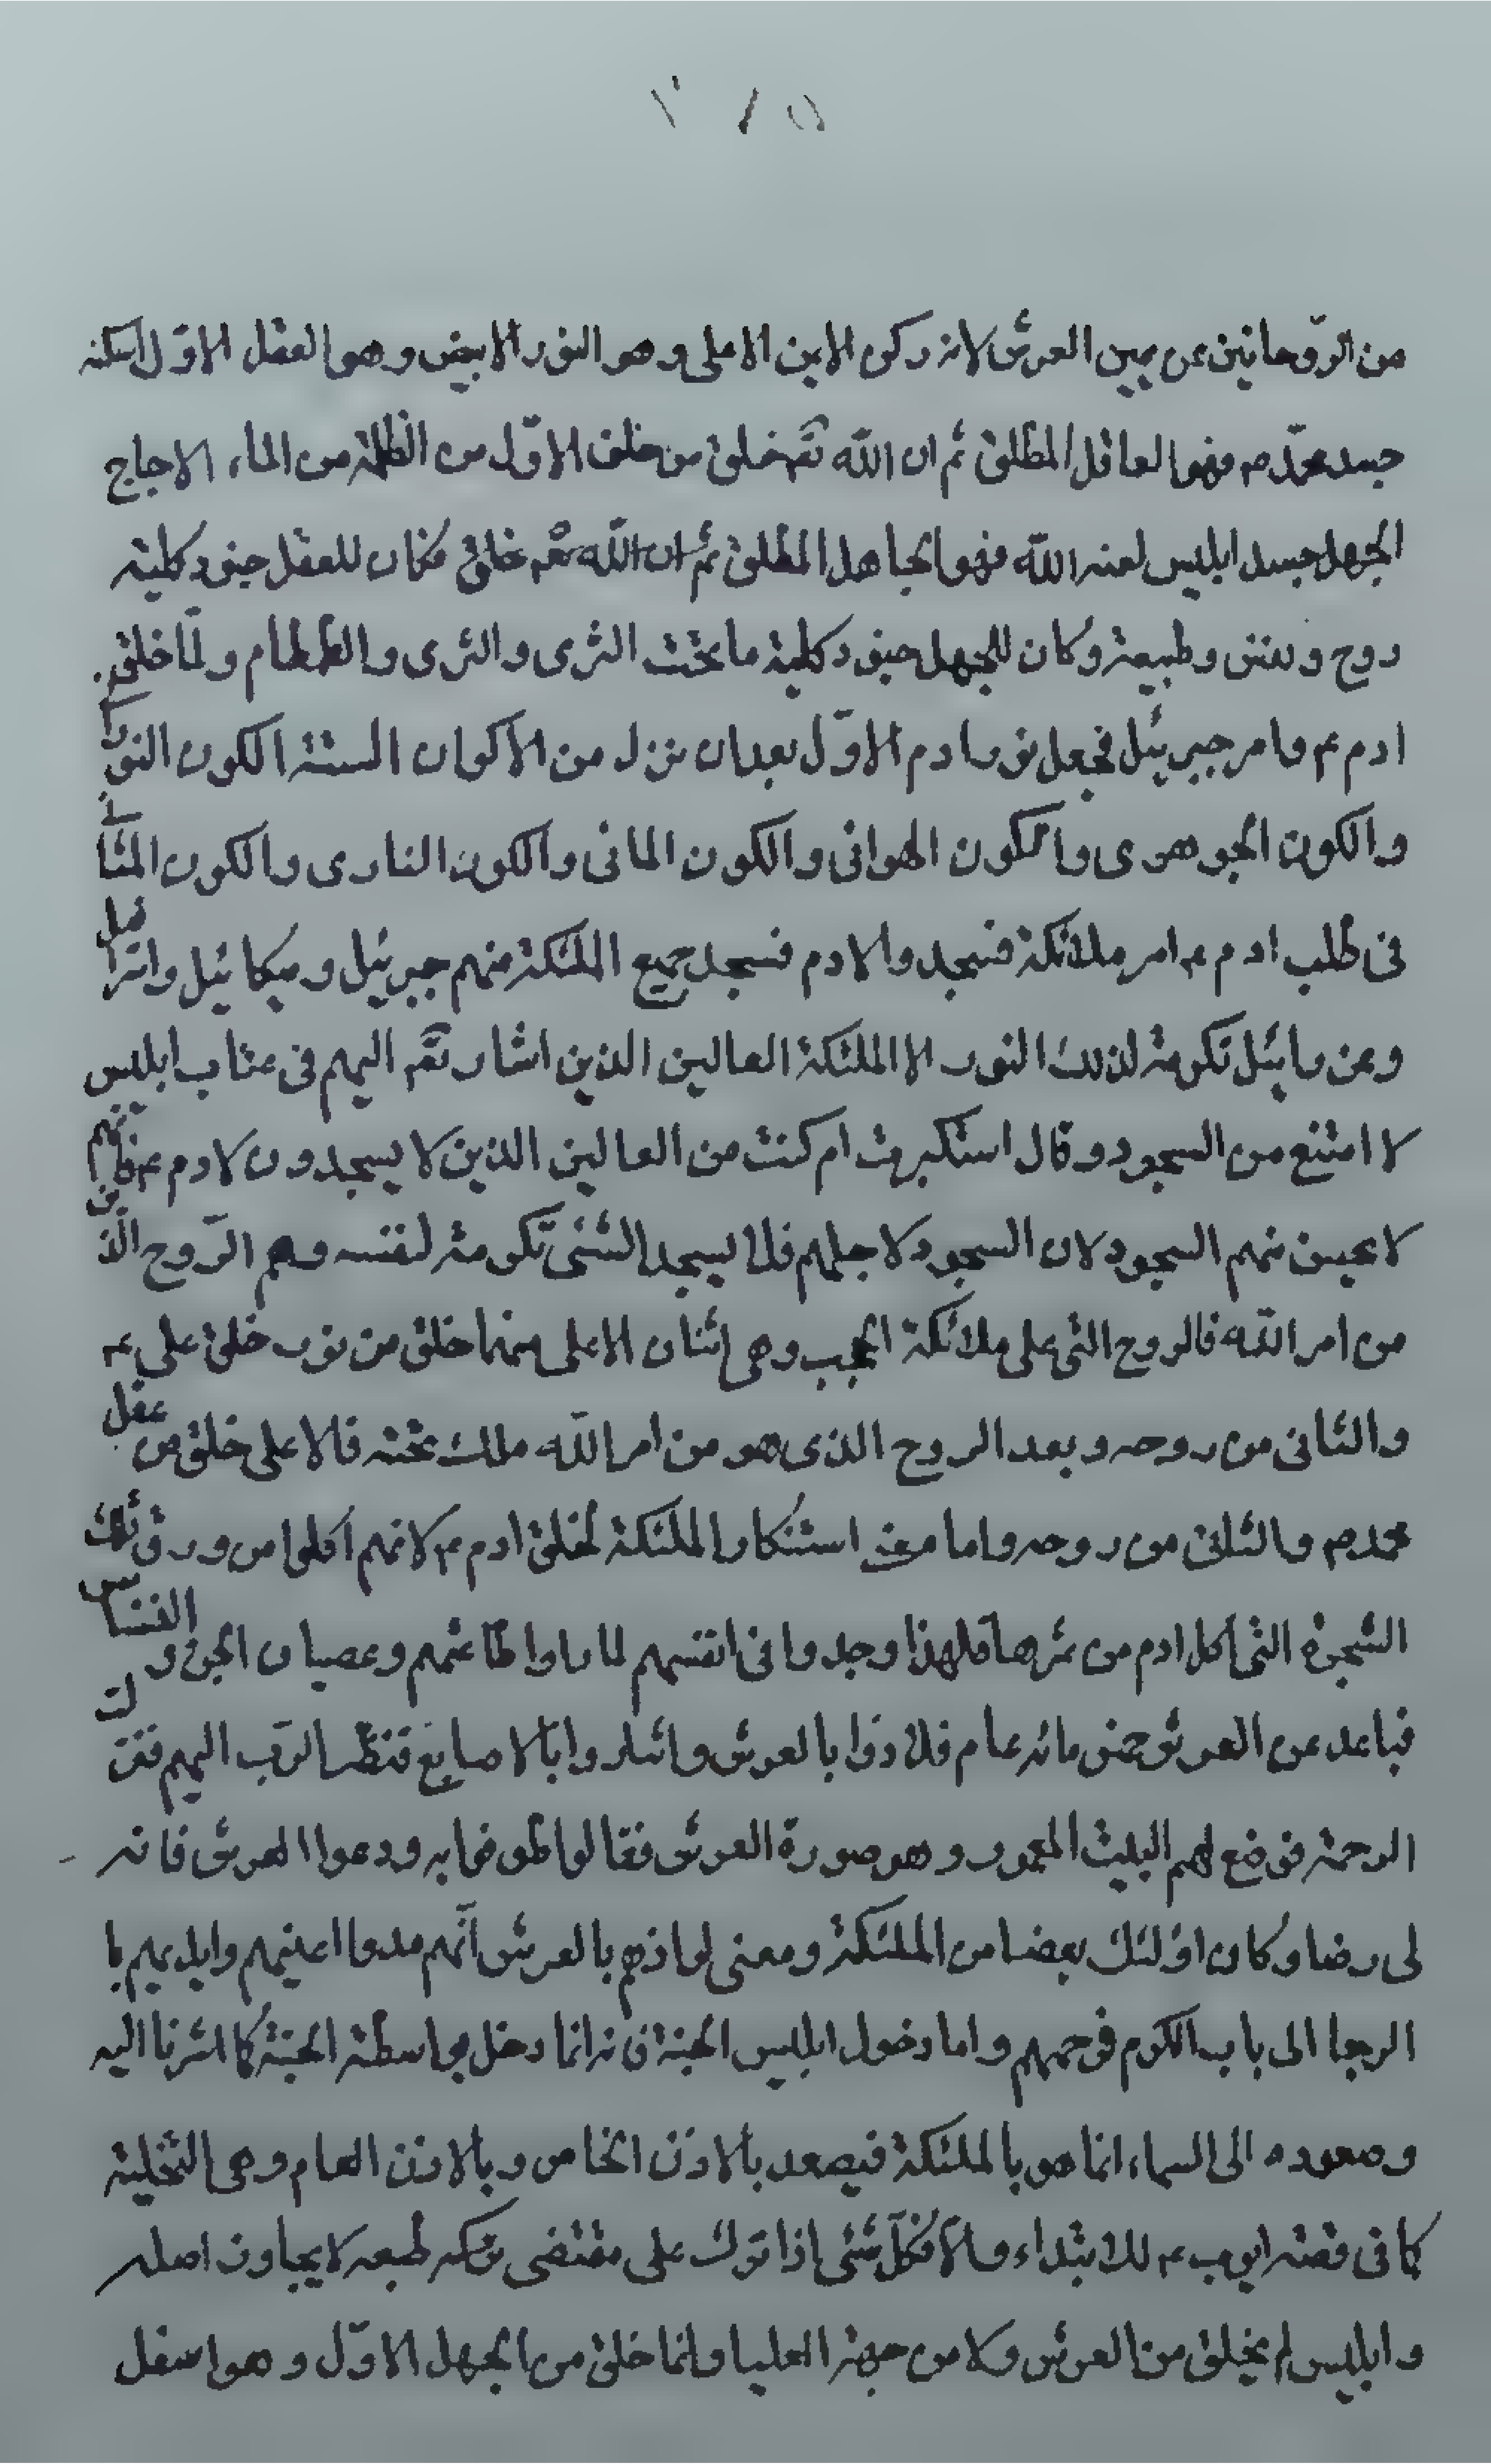 ١٨٥
من الروحانيين عن يمين العرش لانه ركن الايمن الاعلى وهو النور الابيض وهو العقل الاوّل اسكنه
جسد محمّد ص فهو العاقل المطلق ثم ان اللّه تعم خلق من خلق الاوّل من الظلمة من الماء الاجاج
الجهل جسد ابليس لعنه اللّه فهو الجاهل المطلق ثم ان اللّه تعم خلق فكان للعقل جنود كلية
روح ونفس وطبيعة وكان للجهل جنود كلية ما تحت الثرى والثرى والطمطام ولمّا خلق
ادم عم وامر جبرئيل فجعل نور ادم الاوّل بعد ان نزل من الاكوان الستة الكون النورا
والكون الجوهرى والكون الهوائى والكون المائى والكون النارى والكون المثالى
فى طلب ادم عم امر ملائكة فسجدوا لادم فسجد جميع الملئكة منهم جبرئيل وميكائيل واسرافيل
وعزرائيل تكرمة لذلك النور الا الملئكة العالين الذين اشار تعم اليهم فى عتاب ابليس
لا امتنع من السجود وقال استكبرت ام كنت من العالين الذين لا يسجدون لادم عم فانهم
لا يحسن منهم السجود لان السجود لاجلهم فلا يسجد الشئى تكرمة لنفسه وهم الرّوح الّذين
من امر اللّه فالروح التى على ملائكة الحجب وهى اثنان الاعلى منهما خلق من نور خلق على عم
والثانى من روحه وبعد الروح الذى هو من امر اللّه ملك تحته فالاعلى خلق من عقل
محمد ص والثانى من روحه واما معنى استنكار الملئكة لخلق ادم عم لانهم اكلوا من ورق تلك
الشجرة التى اكل ادم من ثمرها فلهذا وجدوا فى انفسهم لما راوا طاعتهم وعصيان الجن و النسناس
فباعد عن العرش خمس مائه عام فلاذوا بالعرش واشاروا بالاصابع فنظر الرّب اليهم فنزلت
الرحمة فوضع لهم البيت المعمور وهو صورة العرش فقالوا طوفوا به ودعوا العرش فانه
لى رضا وكان اولئك بعضا من الملئكة ومعنى لواذهم بالعرش انّهم مدوا اعينهم وايديهم با
الرجا الى باب الكرم فرحمهم واما دخول ابليس الجنة فانه انما دخل بواسطة الحية كما اشرنا اليه
وصعوده الى السماء انما هو بالملئكة فيصعد بالاذن الخاص وبالاذن العام وهى التخلية
كما فى قصة ايوب عم للابتداء والّا فكلّ شئى اذا ترك على مقتضى طبعه لا يجاوز اصله
وابليس لم يخلق من العرش ولا من جهة العليا وانما خلق من الجهل الاوّل وهو اسفل